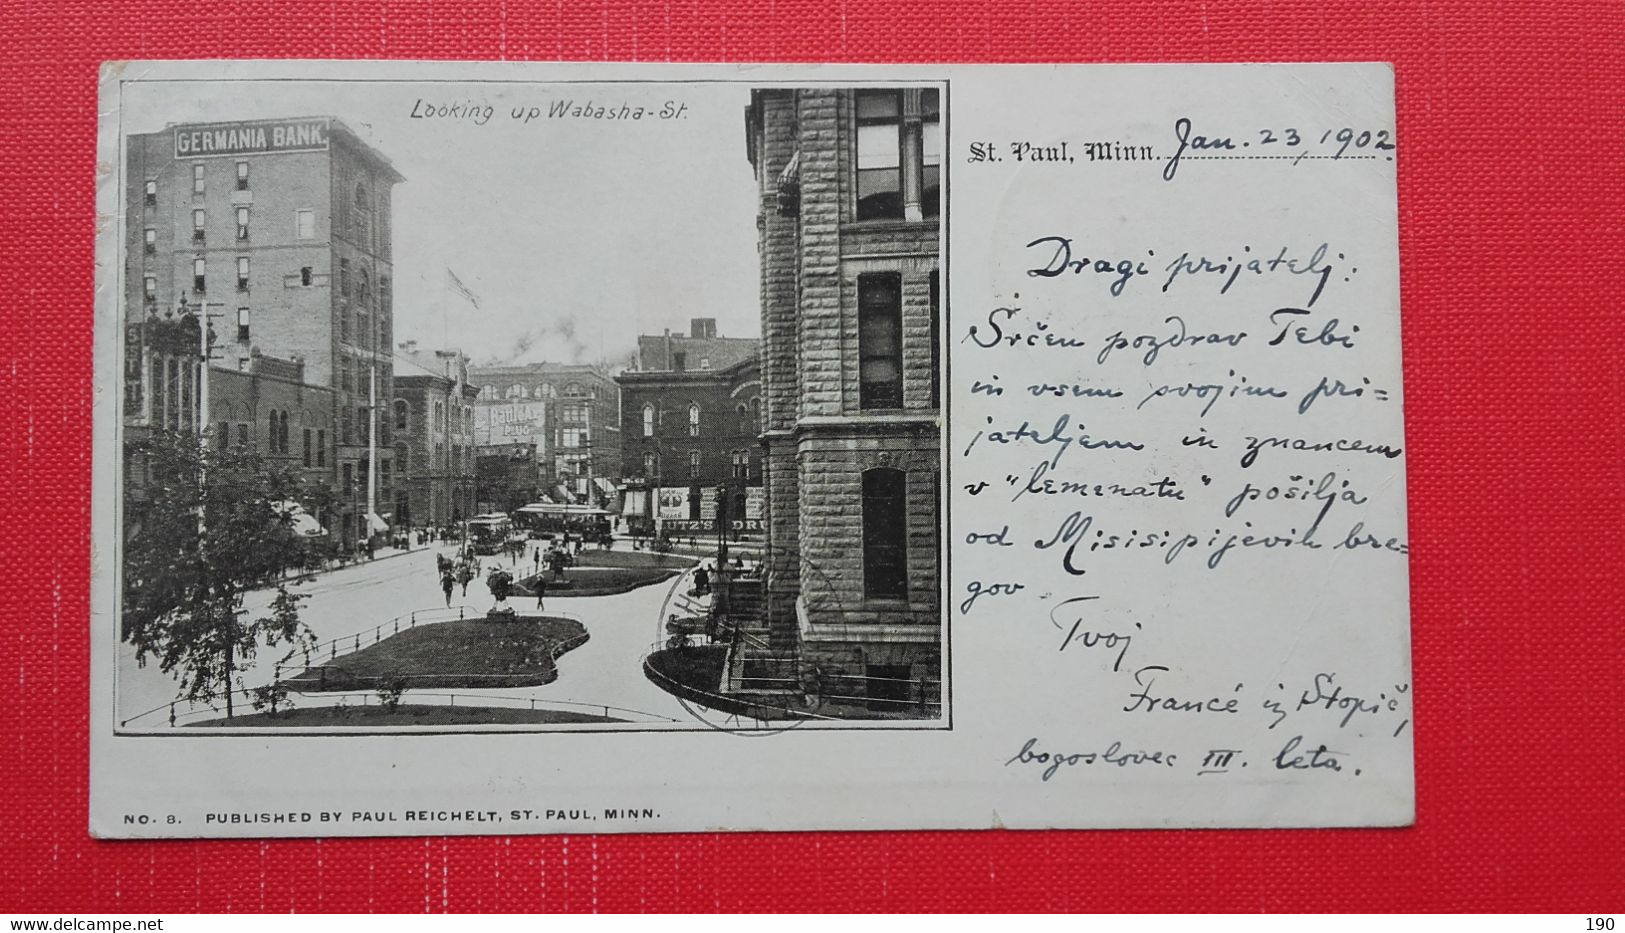 Looking up Wabasha-St.
GERMANIA BANK.
St. Paul, Minn. Jan. 23, 1902.
Dragi prijatelj:
Srčen pozdrav Tebi
in vsem svojim pri=
jateljem in znancem
v "lemenatu" pošilja
od Misisipijevih bre=
gov
Tvoj
Francé iz Stopič,
bogoslovec III. leta.
PLUG
UTZ'S DRU
NO. 8. PUBLISHED BY PAUL REICHELT, ST. PAUL, MINN.
delcampe.net
Marko23
190